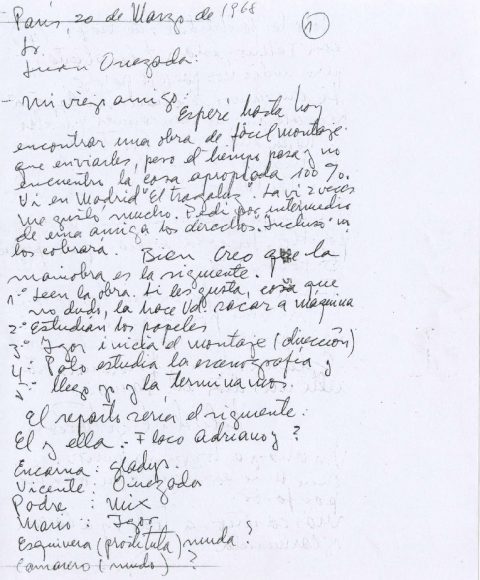 Paris, 20 de Marzo de 1968
1
Sr.
Juan Quezada:
- Mi viejo amigo: Esperé hasta hoy
encontrar una obra de fácil montaje
que enviarles, pero el tiempo pasa y no
encuentro la cosa apropiada 100%.
Vi en Madrid "El tragaluz". La vi 2 veces
me gustó mucho. Pedí por intermedio
de una amiga los derechos. Incluso
los cobrará. Bien creo que la
maniobra es la siguiente.
1-° Leen la obra. Si les gusta, cosa que
no dudo, la hace Ud. sacar a máquina
2-° Estudian los papeles
3-° Igor inicia el montaje (dirección)
4-° Polo estudia la escenografía y
5-° llego yo y la terminamos.
El reparto sería el siguiente:
El y ella: Flaco Adriano y ?
Encarna: Gladys.
Vicente: Quezada
Padre: Mix
Mario: Igor
Esquinera (prostituta) muda ?
Camarero (mudo) ?